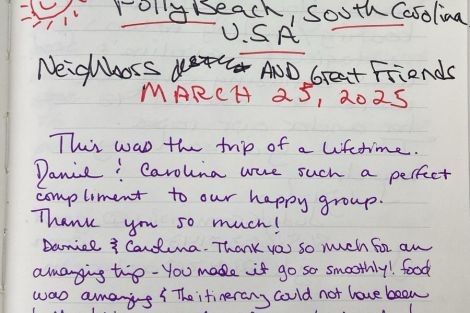 Folly Beach, South Carolina
U.S.A
Neighbors AND Great Friends
MARCH 25, 2025
This was the trip of a lifetime.
Daniel & Carolina were such a perfect
compliment to our happy group.
Thank you so much!
Daniel & Carolina - Thank you so much for an
amazing trip - You made it go so smoothly! food
was amazing & The itinerary could not have been